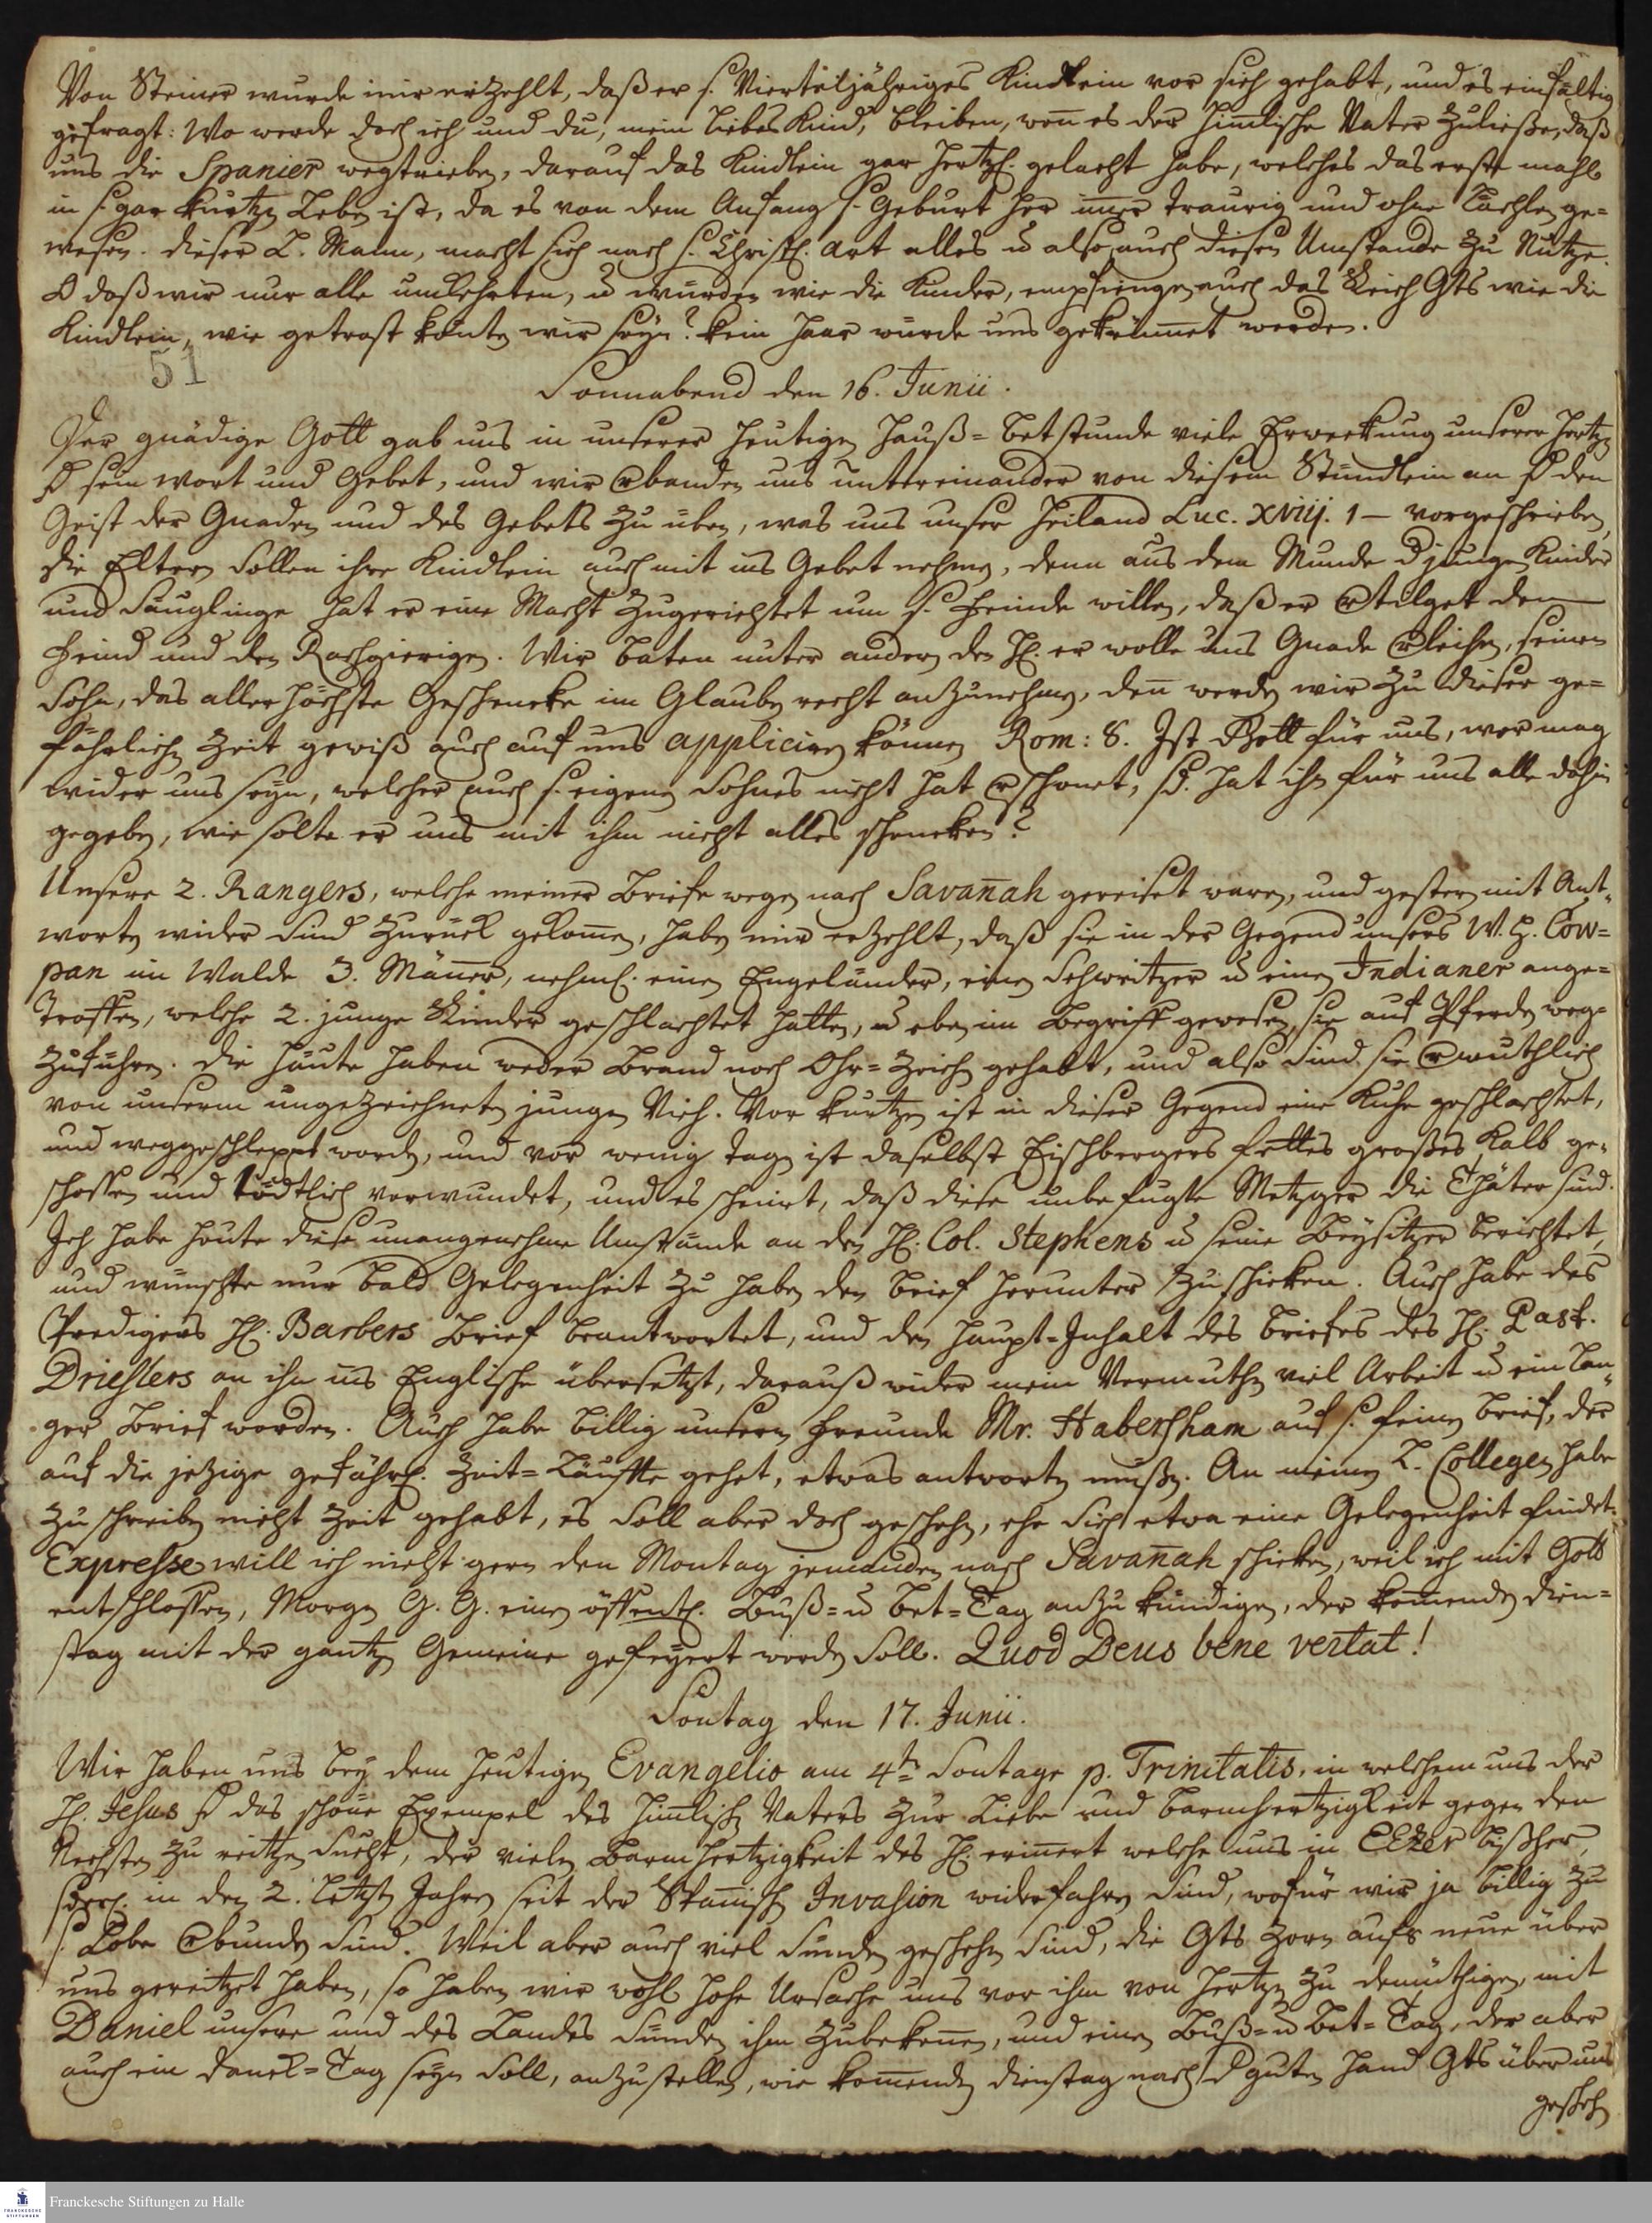 Von Steiner wurde mir erzehlt, daß er s. Vierteljähriges Kindlein vor sich gehabt, und es einfältig
gefragt: Wo werde doch ich und du, mein liebes Kind, bleiben, wen̄ es der him̄lische Vater zuließe, daß
uns die Spanier wegtrieben, darauf das Kindlein gar hertzl. gelacht habe, welches das erste mahl
in s. gar kurtzen Leben ist, da es von dem Anfang s. Geburt her im̄er traurig und ohne Lächlen ge=
wesen. dieser l. Mann, macht sich nach s. Christl. Art alles u also auch diesen Umstande zu Nutze.
O daß wir nur alle umkehrten, u würden wie die Kinder, empfiengen auch das Reich Gts wie die
Kindlein, wie getrost könten wir seyn? kein Haar würde uns gekrüm̄et werden.
51
Sonnabend den 16. Junii.
Der gnädige Gott gab uns in unserer heutigen Hauß=betstunde viele Erweckung unserer Hertzen
sein Wort und Gebet, und wir verbanden uns untereinander von diesem Stündlein an den
Geist der Gnaden und des Gebets zu üben, was uns unser Heiland Luc. XViij. 1 — vorgeschrieben,
die Eltern sollen ihre Kindlein auch mit ins Gebet nehmen, denn aus dem Munde der jungen Kinder
und Säuglinge hat er eine Macht zugerichtet um s. Feinde willen, daß er vertilget den
Feind und den Rachgierigen. Wir baten unter andern den H. er wolle uns Gnade verleihen, seinen
Sohn, das allerhöchste Geschencke im Glauben recht anzunehmen, den̄ werden wir zu dieser ge=
fährlichen Zeit gewiß auch auf uns appliciren können Rom: 8. Ist Gott für uns, wer mag
wider uns seyn, welcher auch s. eigenen Sohnes nicht hat verschonet, sd. hat ihn für uns alle dahin
gegeben, wie solte er uns mit ihm nicht alles schencken?
Unsere 2. Rangers, welche meiner Briefe wegen nach Savan̄ah gereiset waren, und gestern mit Ant„
worten wider sind zurück gekom̄en, haben mir erzehlt, daß sie in der Gegend unsers W. H. Cow=
pan im Walde 3. Män̄er, nehml. einen Engeländer, einen Schweitzer u einen Indianer ange=
troffen, welche 2. junge Rinder geschlachtet hatten, u eben im Begriff gewesen, sie auf Pferden weg=
zuführen. die Häute haben weder Brand noch Ohr=Zeichen gehabt, und also sind sie vermuthlich
von unserm ungezeichneten jungen Vieh. Vor kurtzen ist in dieser Gegend eine Kuhe geschlachtet,
und weggeschleppet worden, und vor wenig tagen ist daselbst Eischbergers fettes großes Kalb ge„
schossen und tödtlich verwundet, und es scheinet, daß diese unbefugte Metzger die Thäter sind.
Ich habe heute diese unangenehme Umstände an den H. Col. Stephens u seine Beysitzer berichtet,
und wünschte nur bald Gelegenheit zu haben den Brief herunter zu schicken. Auch habe des
Predigers H. Barbers Brief beantwortet, und den Haupt=Inhalt des Briefes des H. Past.
Drieslers an ihn ins Englische übersetzt, darauß wider mein Vermuthen viel Arbeit u ein lan„
ger Brief worden. Auch habe billig unserm Freunde Mr. Habersham auf s. feinen Brief, der
auf die jetzige gefährl. Zeit=Läuffte gehet, etwas antworten müßen. An meinen l. Collegen habe
zu schreiben nicht Zeit gehabt, es soll aber doch geschehen, ehe sich etwa eine Gelegenheit findet.
Expresse will ich nicht gern den Montag jemanden nach Savan̄ah schicken, weil ich mit Gott
entschlossen, Morgen G. G. einen öffentl. Buß=u Bet=Tag anzukündigen, der kom̄enden Dien=
stag mit der gantzen Gemeine gefeyert werden soll. Quod Deus bene vertat!
Sontag den 17. Junii.
Wir haben uns bey dem heutigen Evangelio am 4tn Sontage p. Trinitatis, in welchem uns der
H. Jesus das schöne Exempel des him̄lischen Vaters zur Liebe und Barmhertzigkeit gegen den
Nechsten zu reitzen sucht, der vielen Barmhertzigkeit des H. erin̄ert welche uns in EEzer bißher,
in den 2. letzten Jahren seit der Spanischen Invasion widerfahren sind, wofür wir ja billig zu
s. Lobe verbunden sind. Weil aber auch viel Sünden geschehen sind, die Gts Zorn aufs neue über
uns gereitzet haben, so haben wir wohl hohe Ursache uns vor ihm von Hertzen zu demüthigen, mit
Daniel unsere und des Landes Sünden ihm zubeken̄en, und einen Buß=u Bet=Tag, der aber
auch ein Danck=Tag seyn soll, anzustellen, wie kom̄enden Dienstag nach der guten Hand Gts über uns
geschehen
Franckesche Stiftungen zu Halle